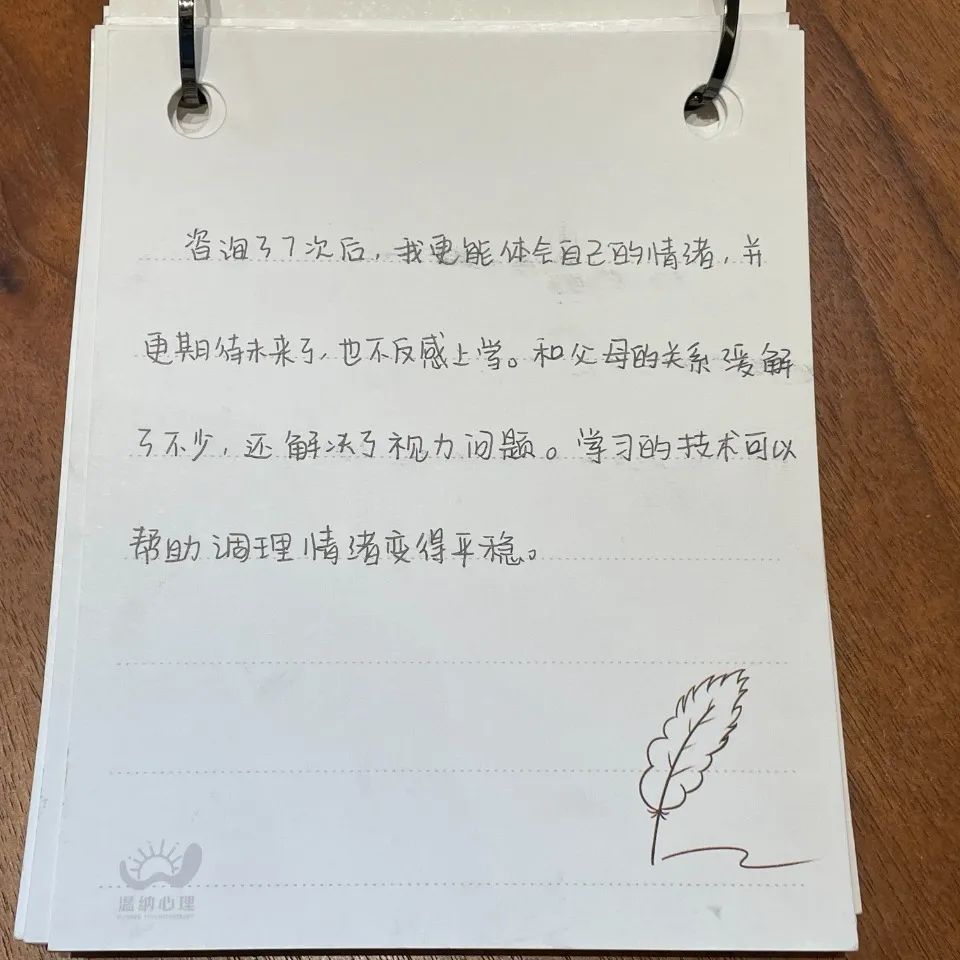 咨询了7次后，我更能体会自己的情绪，并
更期待未来了，也不反感上学。和父母的关系缓解
了不少，还解决了视力问题。学习的技术可以
帮助调理情绪变得平稳。
温纳心理